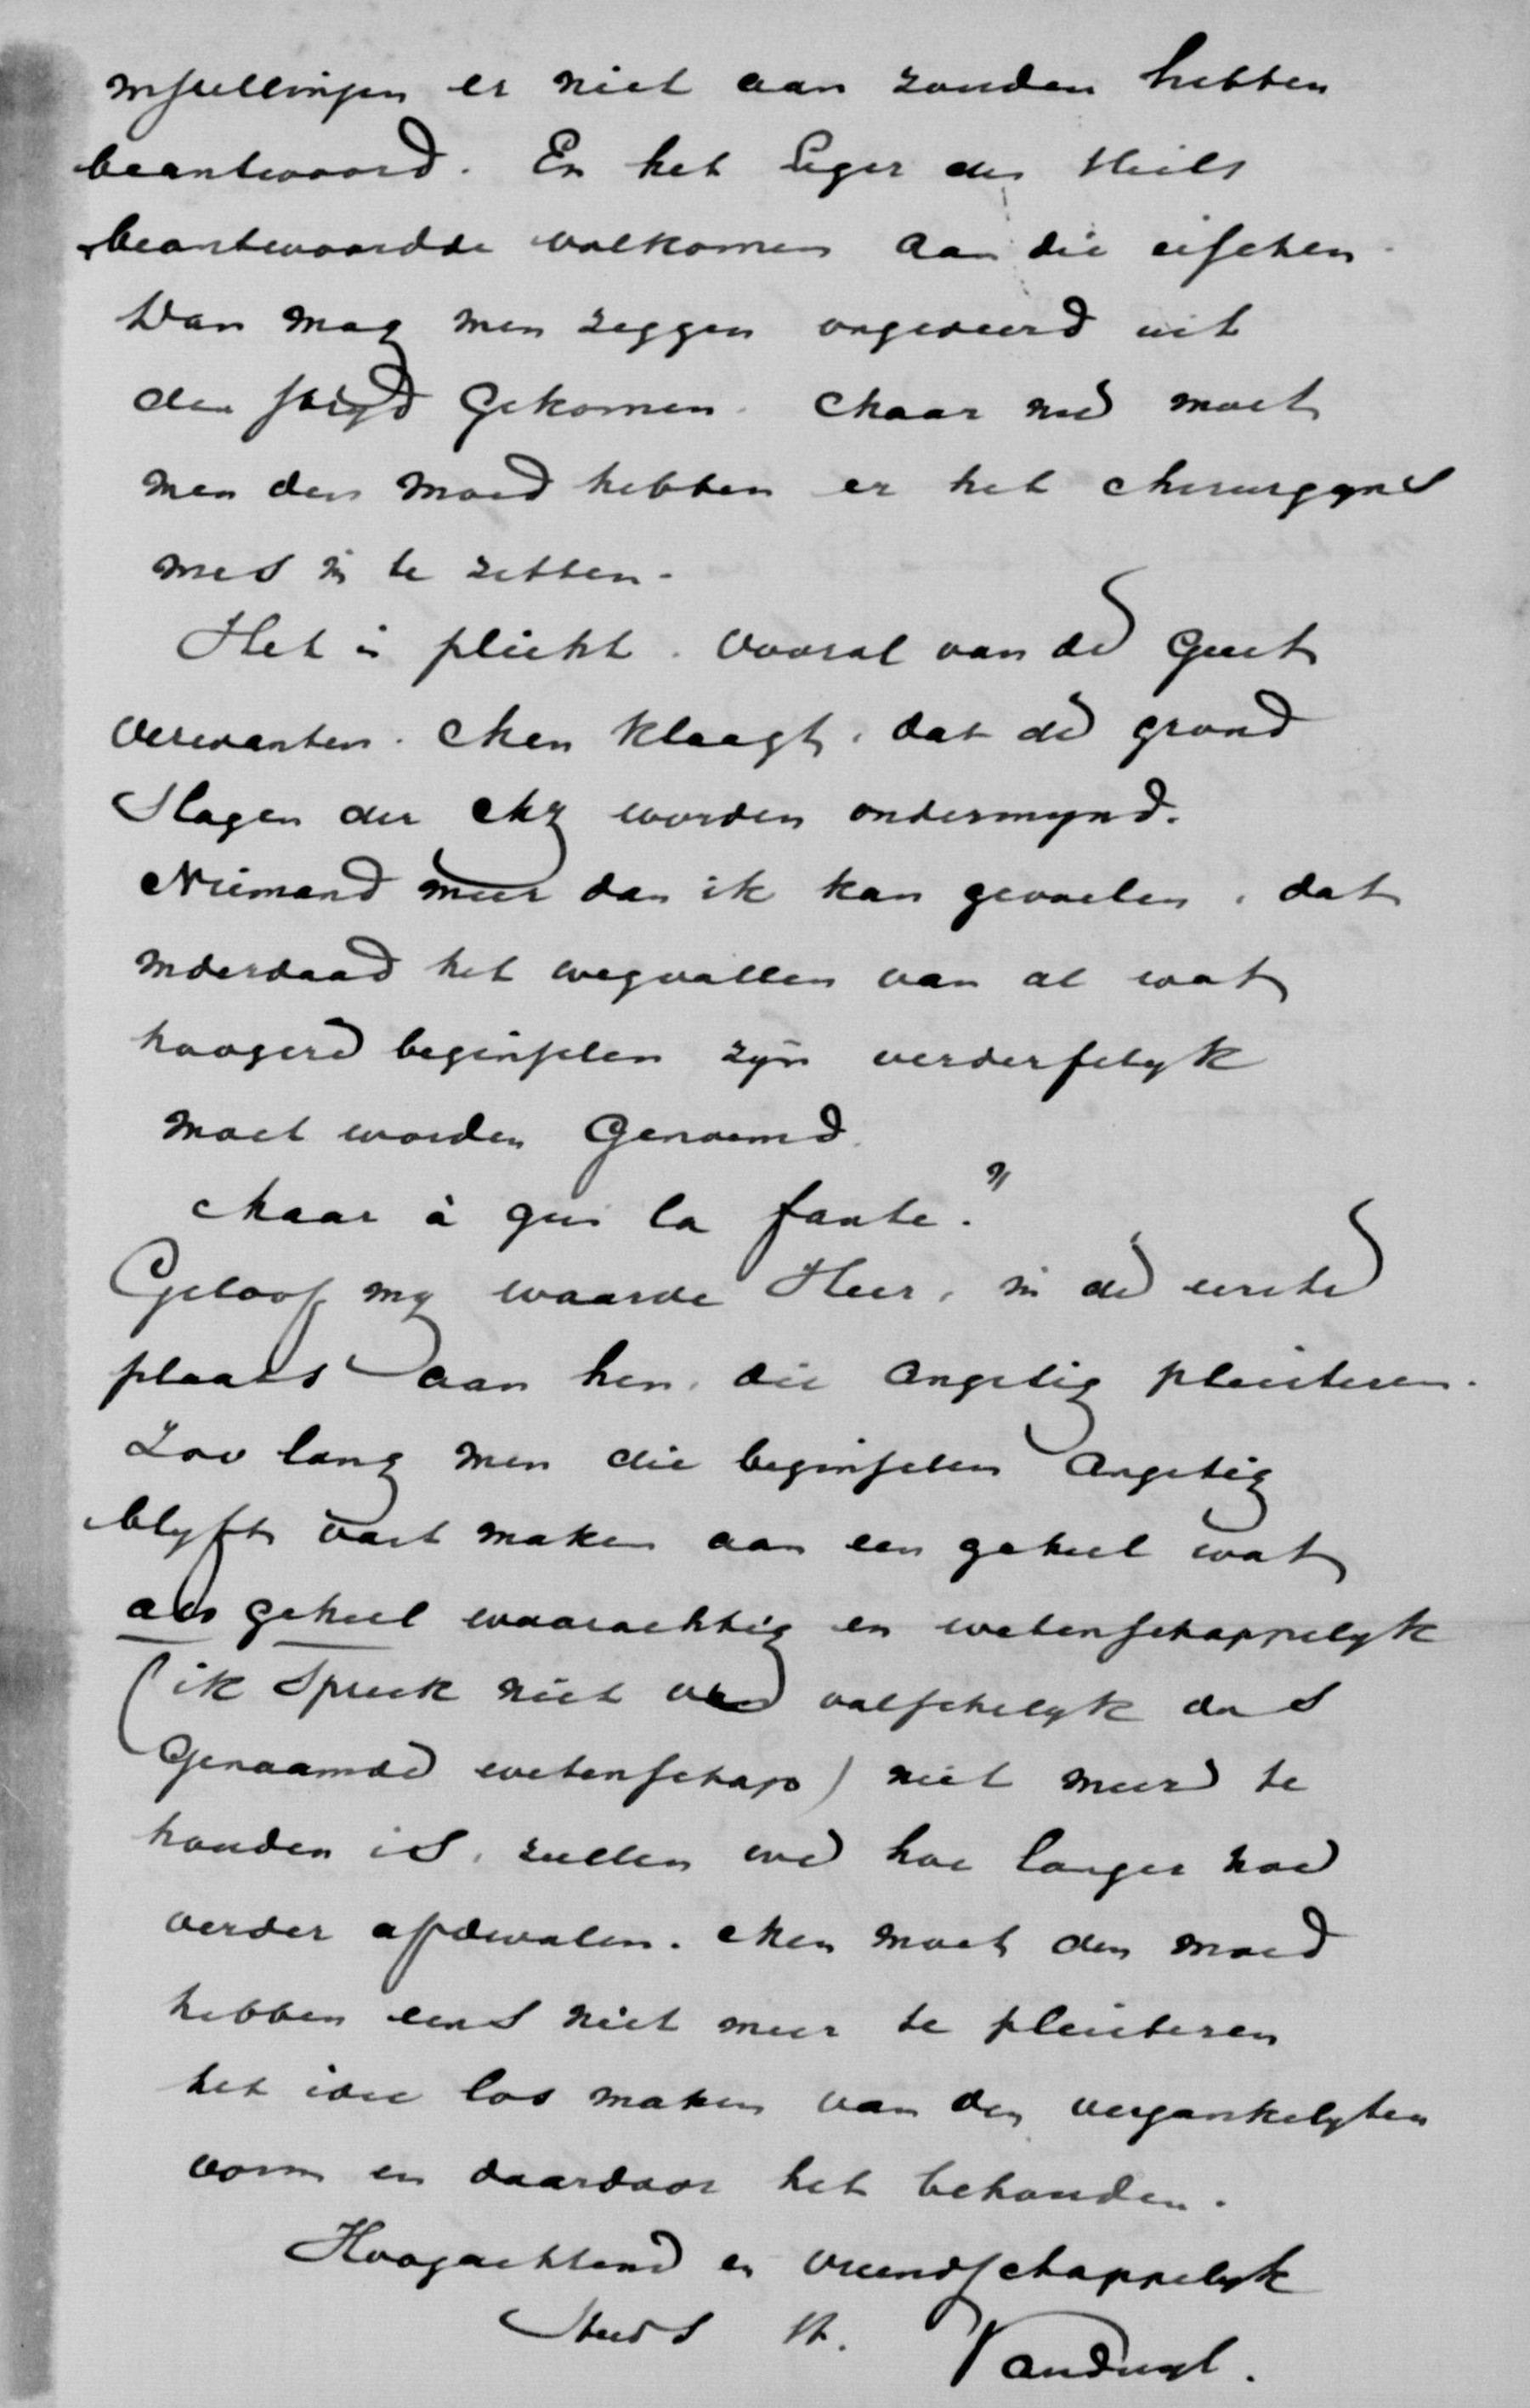 instellingen er niet aan zouden hebben
beantwoord. En het Leger des Heils
beantwoordde volkomen aan die eischen.
Dan mag men zeggen ongedeerd uit
den strijd gekomen. Maar nu moet
men den moed hebben er het chirurgyns
mes in te zetten.
Het is plicht. Vooral van de geest
verwanten. Men klaagt, dat de grond
slagen der Mij worden ondermynd.
Niemand meer dan ik kan gevoelen, dat
inderdaad het wegvallen van al wat
hoogere beginselen zyn verderfelyk
moet worden genoemd.
Maar à qui la faute?
Geloof my waarde Heer, in de eerste
plaats aan hen, die angstig pleisteren.
Zoo lang men die beginselen angstig
blyft vast maken aan een geheel wat
als geheel waarachtig en wetenschappelyk
(ik spreek niet van valschelyk dus
genaamde wetenschap) niet meer te
houden is, zullen we hoe langer hoe
verder afdwalen. Men moet den moed
hebben eens niet meer te pleisteren
het idee los maken van den vergankelyken
vorm en daardoor het behouden.
Hoogachtend en vriendschappelyk
Steeds